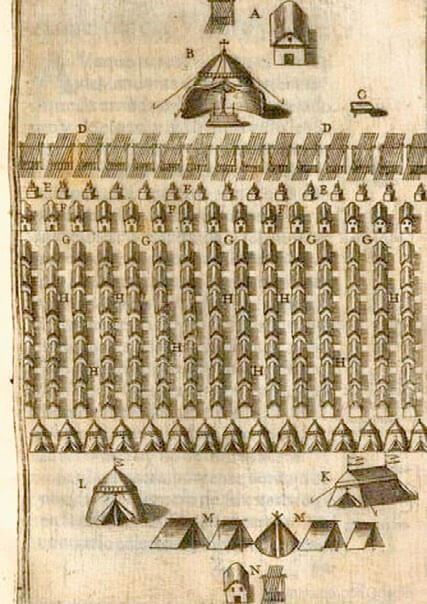 A
B
C
D D
E E E
F F F
G G G G G
H H H H
H H
H H
I K
M M
N